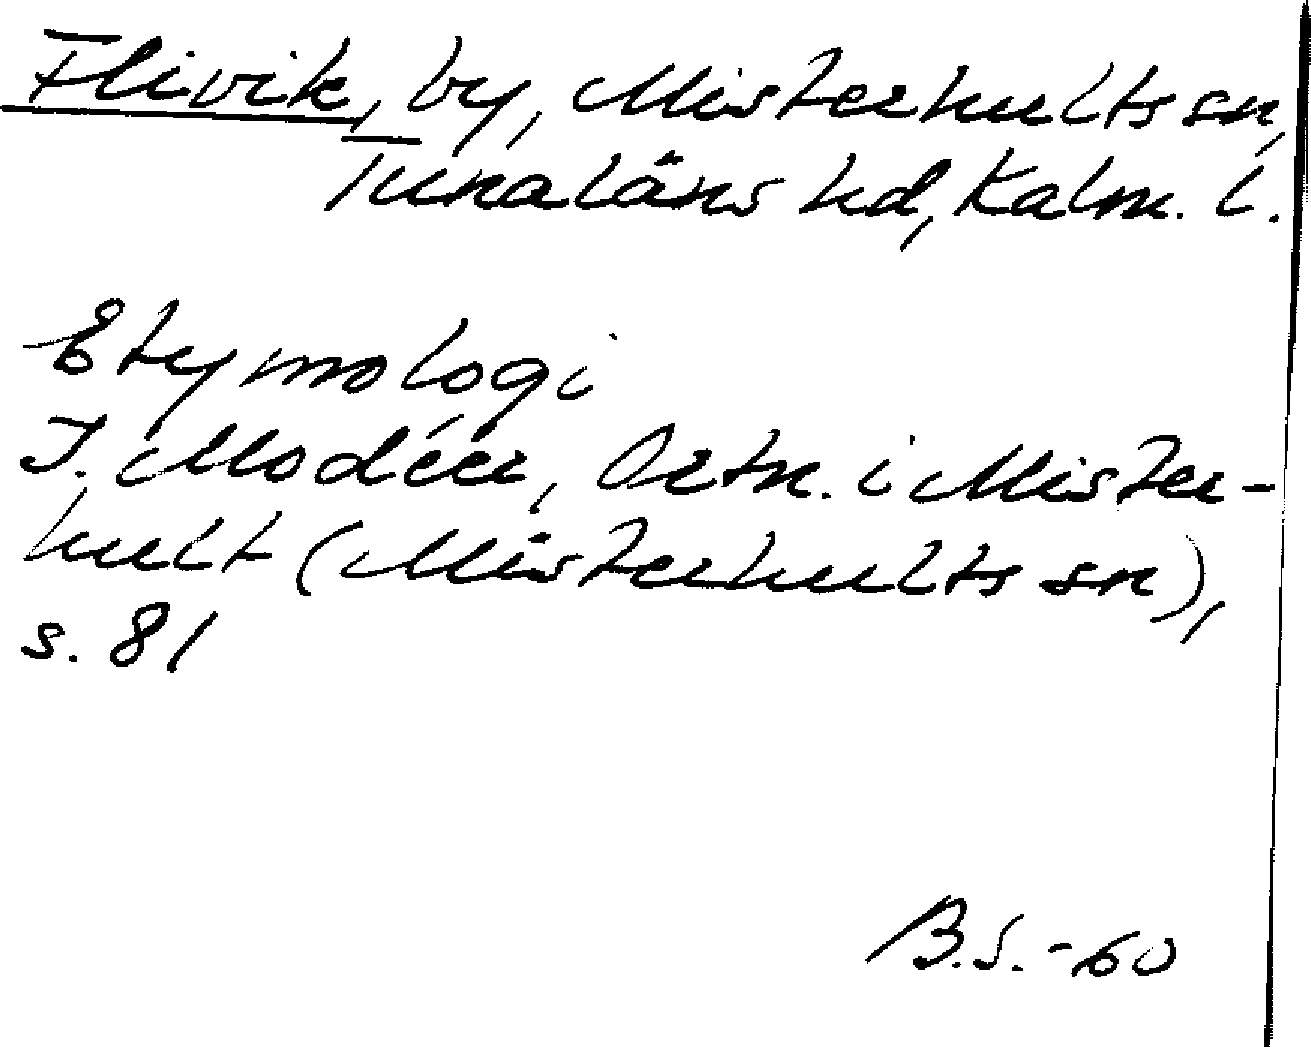 Flivik, by, Misterhults sn,
Tunaläns hd, Kalm. l.
Etymologi
I. Modéer, Ortn. i Mister-
hult (Misterhults sn),
s. 81
B.S.-60